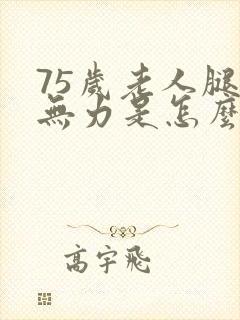 75歲老人腿
無力是怎麼
高宇飛